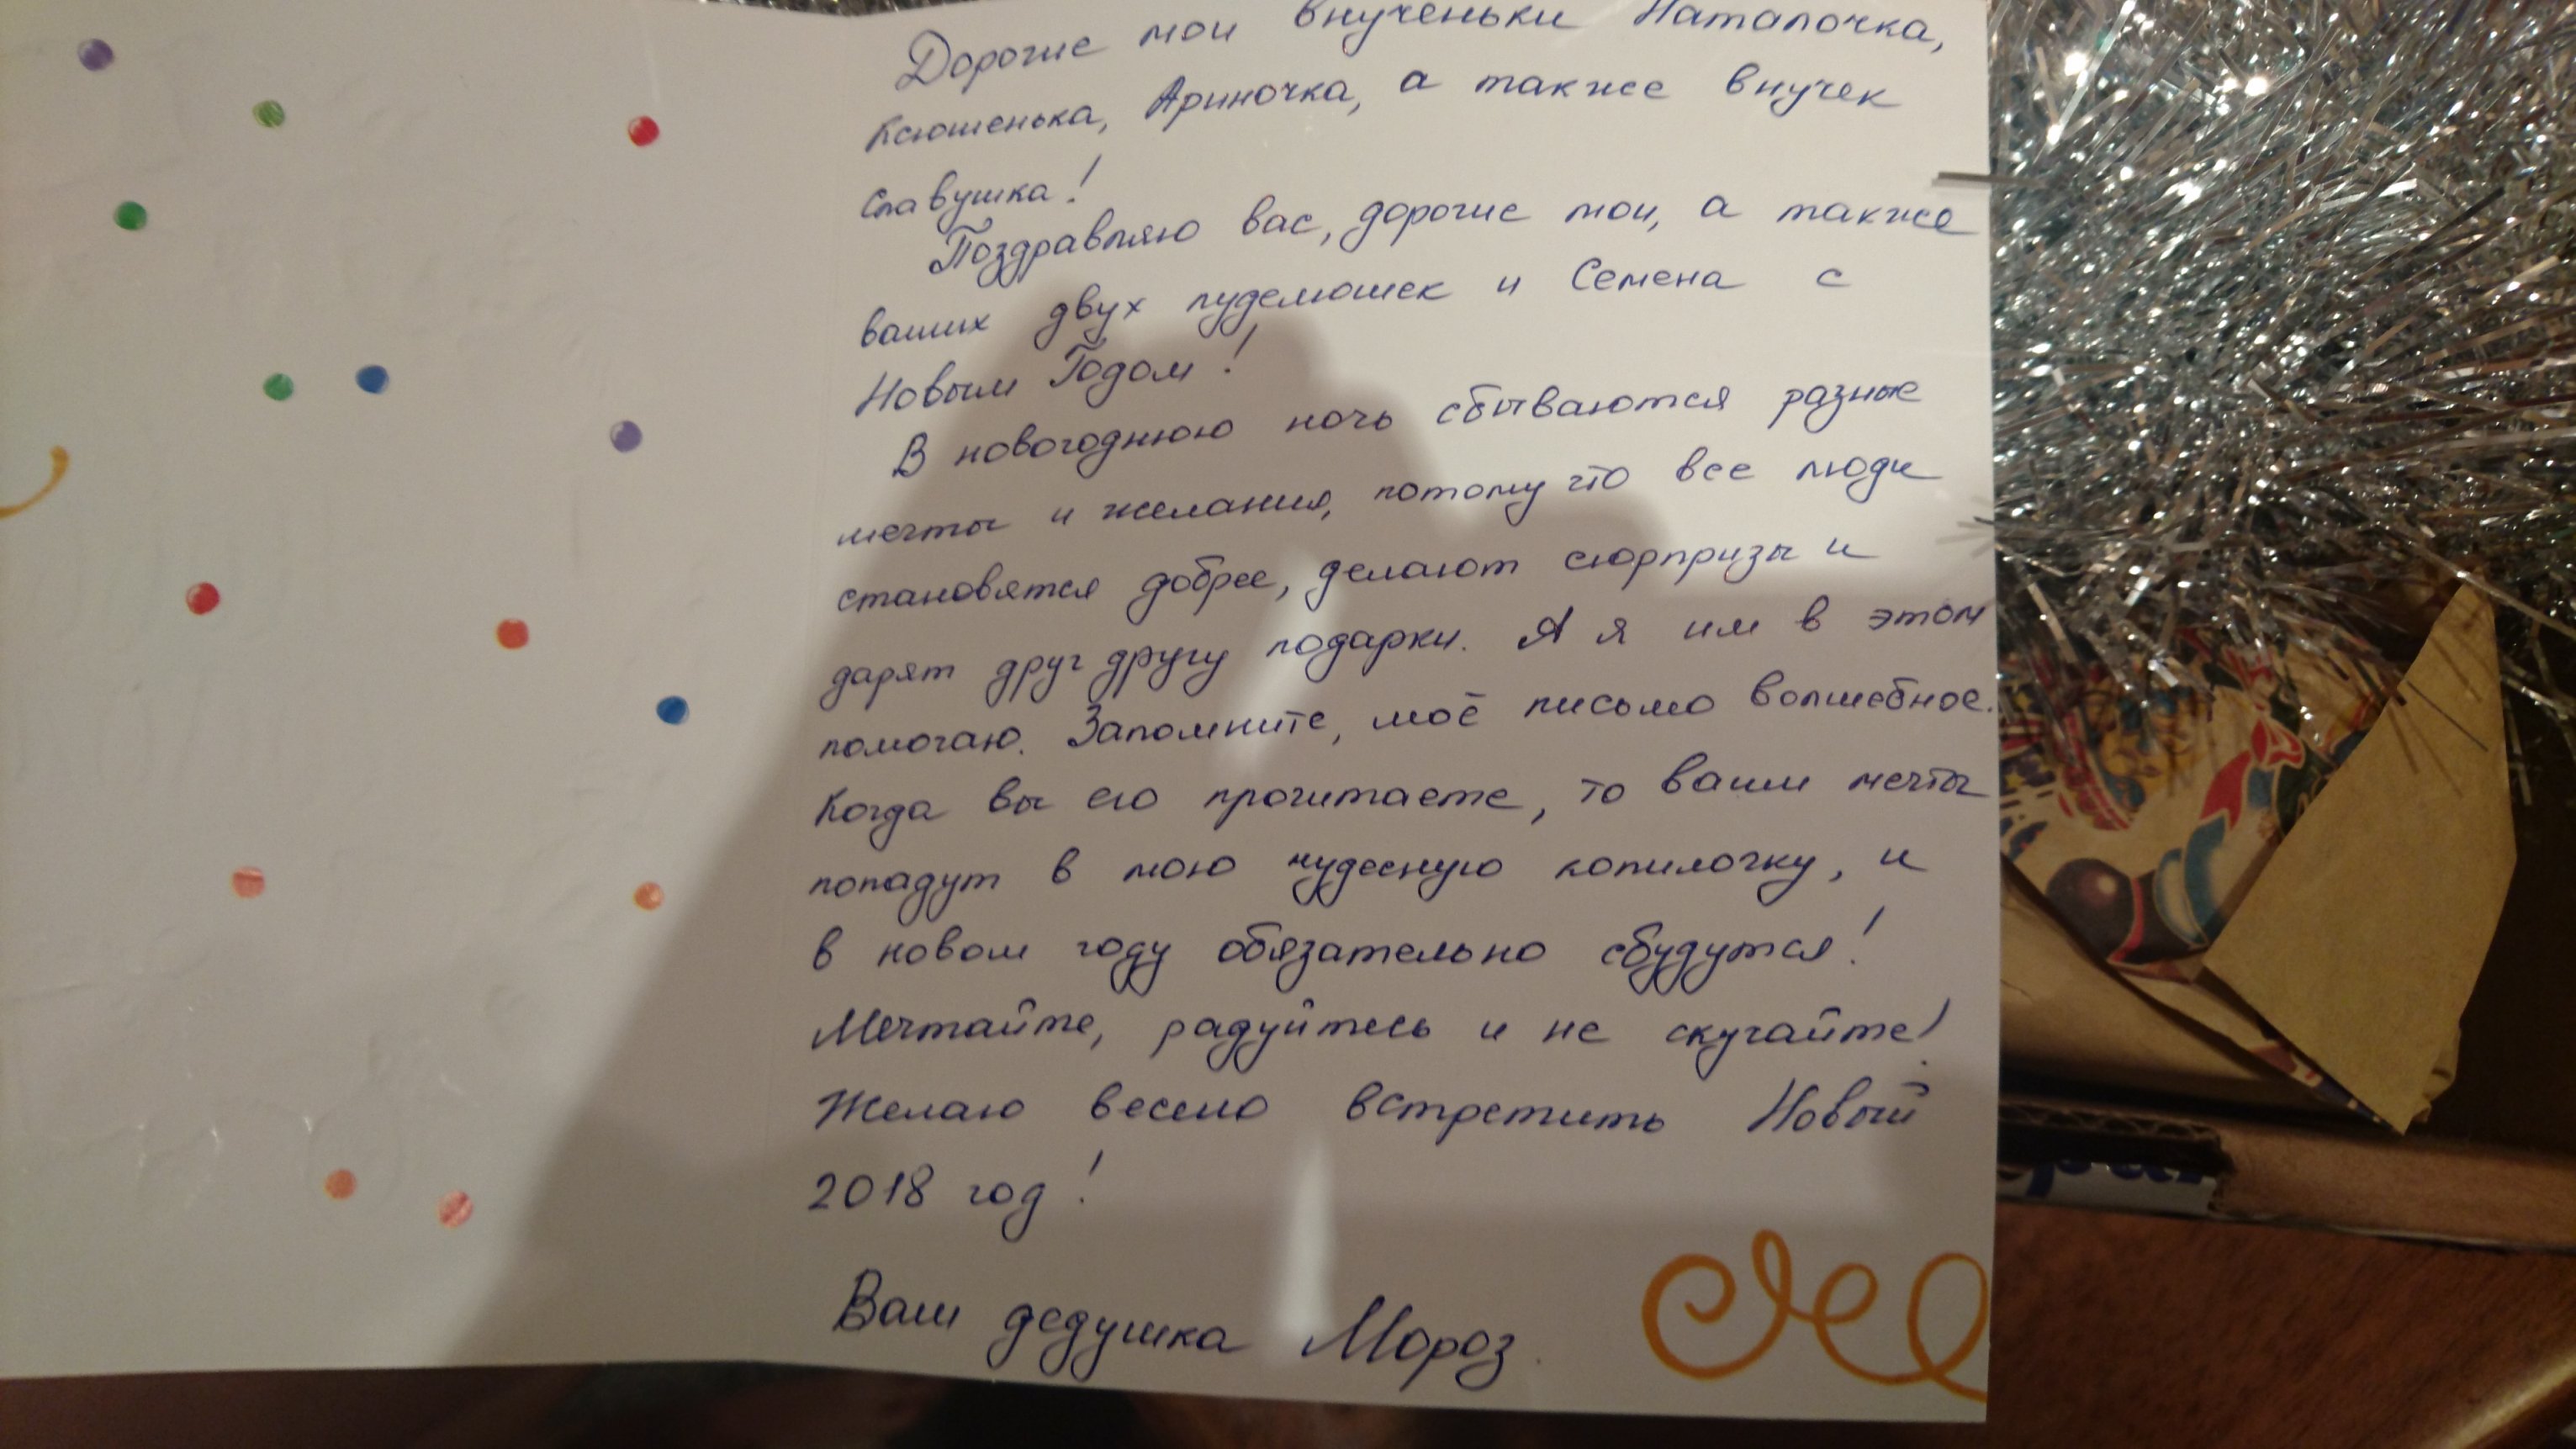 Дорогие мои внученьки Наталочка,
Ксюшенька, Ариночка, а также внучек
Славушка!
Поздравляю вас, дорогие мои, а также
ваших двух пуделюшек и Семена с
Новым Годом!
В новогоднюю ночь сбываются разные
мечты и желания, потому что все люди
становятся добрее, делают сюрпризы и
дарят друг другу подарки. А я им в этом
помогаю. Запомните, моё письмо волшебное.
Когда вы его прочитаете, то ваши мечты
попадут в мою чудесную копилочку, и
в новом году обязательно сбудутся!
Мечтайте, радуйтесь и не скучайте!
Желаю весело встретить Новый
2018 год!
Ваш дедушка Мороз.